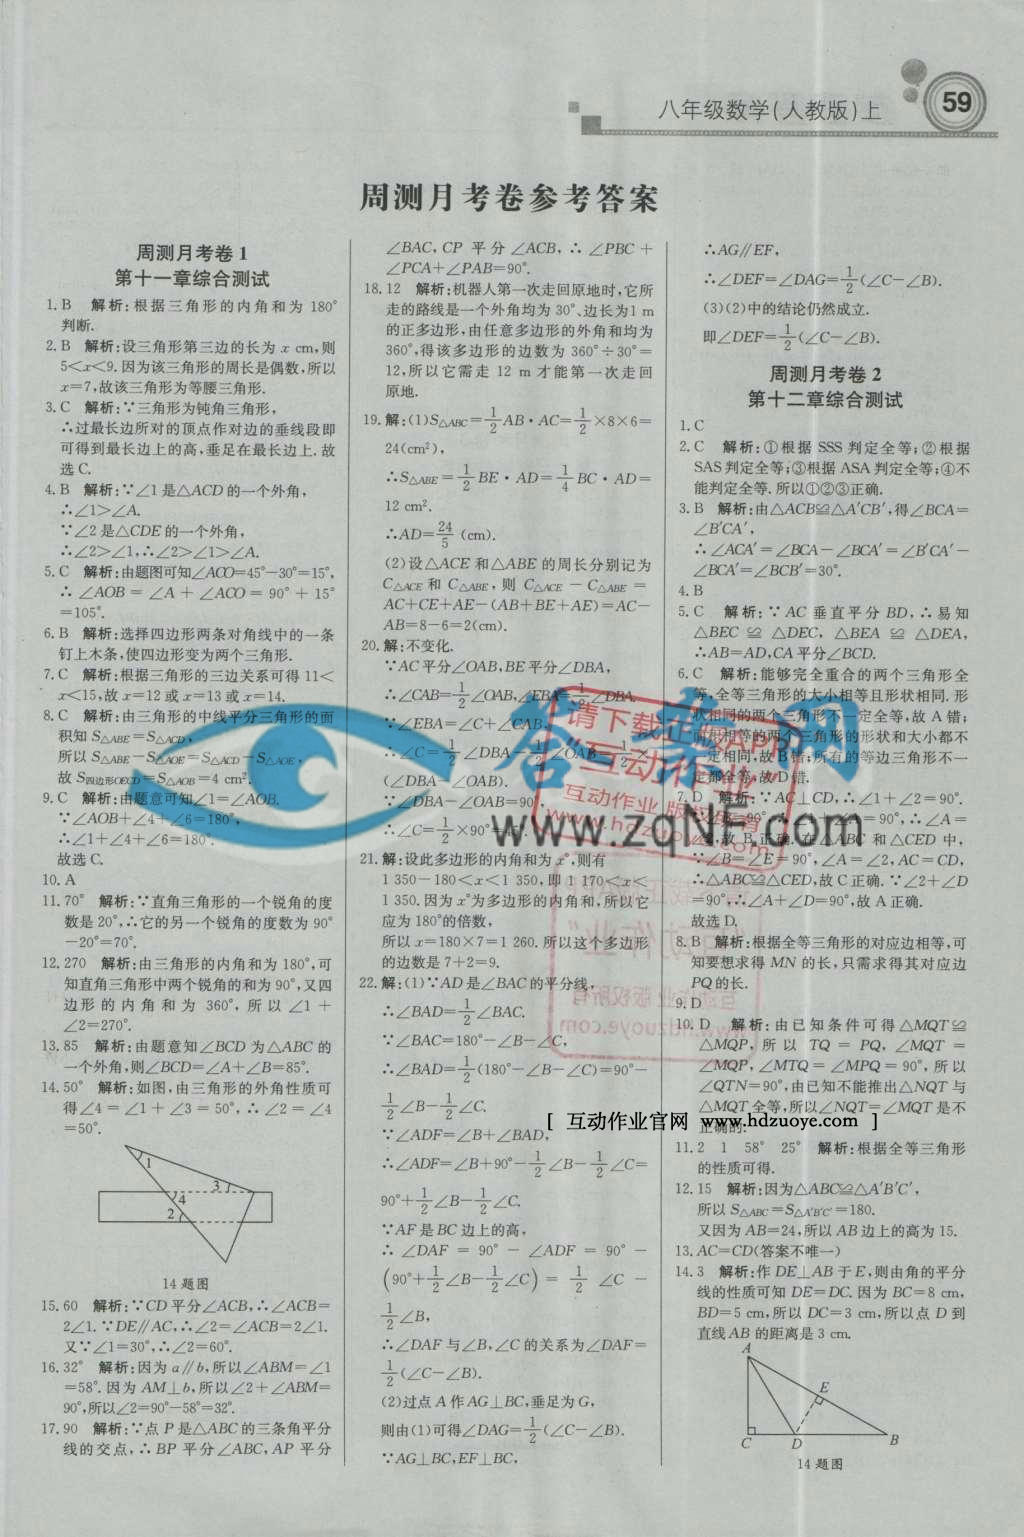 八年级数学(人教版)上
59
周测月考卷参考答案
周测月考卷 1
第十一章综合测试
1. B 解析:根据三角形的内角和为 180°
判断.
2. B 解析:设三角形第三边的长为 x cm,则
5<x<9.因为该三角形的周长是偶数,所以
x=7,故该三角形为等腰三角形.
3. C 解析:∵三角形为钝角三角形,
∴过最长边所对的顶点作对边的垂线段即
可得到最长边上的高,垂足在最长边上.故
选C.
4. B 解析:∵∠1是△ACD的一个外角,
∴∠1>∠A.
∵∠2是△CDE的一个外角,
∴∠2>∠1,∴∠2>∠1>∠A.
5. C 解析:由题图可知∠ACO=45°-30°=15°,
∴ ∠AOB = ∠A + ∠ACO = 90° + 15°
=105°.
6. B 解析:选择四边形两条对角线中的一条
钉上木条,使四边形变为两个三角形.
7. C 解析:根据三角形的三边关系可得11<
x<15,故x=12或x=13或x=14.
8. C 解析:由三角形的中线平分三角形的面
积知 S△ABE=S△ACD,
所以 S△ABE-S△AOE=S△ACD-S△AOE,
故 S四边形OECD=S△AOB=4 cm².
9. C 解析:由题意可知∠1=∠AOB.
∵∠AOB+∠4+∠6=180°,
∴∠1+∠4+∠6=180°.
故选C.
10. A
11. 70° 解析:∵直角三角形的一个锐角的度
数是20°,∴它的另一个锐角的度数为90°
-20°=70°.
12. 270 解析:由三角形的内角和为180°,可
知直角三角形中两个锐角的和为90°,又四
边形的内角和为 360°,所以∠1+
∠2=270°.
13. 85 解析:由题意知∠BCD为△ABC的
一个外角,则∠BCD=∠A+∠B=85°.
14. 50° 解析:如图,由三角形的外角性质可
得∠4=∠1+∠3=50°,∴∠2=∠4
=50°.
1
3
4
2
14题图
15. 60 解析:∵CD平分∠ACB,∴∠ACB=
2∠1.∵DE∥AC,∴∠2=∠ACB=2∠1.
又∵∠1=30°,∴∠2=60°.
16. 32° 解析:因为a∥b,所以∠ABM=∠1
=58°.因为AM⊥b,所以∠2+∠ABM=
90°,所以∠2=90°-58°=32°.
17. 90 解析:∵点P是△ABC的三条角平分
线的交点,∴BP平分∠ABC,AP平分
∠BAC,CP 平分∠ACB,∴∠PBC+
∠PCA+∠PAB=90°.
18. 12 解析:机器人第一次走回原地时,它所
走的路线是一个外角均为30°、边长为1 m
的正多边形,由任意多边形的外角和均为
360°,得该多边形的边数为360°÷30°=
12,所以它需走 12 m才能第一次走回
原地.
19. 解:(1)S△ABC=1/2AB·AC=1/2×8×6=
24(cm²),
∴S△ABE=1/2BE·AD=1/4BC·AD=
12 cm².
∴AD=24/5(cm).
(2)设△ACE和△ABE的周长分别记为
C△ACE和C△ABE,则C△ACE-C△ABE=
AC+CE+AE-(AB+BE+AE)=AC-
AB=8-6=2(cm).
20. 解:不变化.
∵AC平分∠OAB,BE平分∠DBA,
∴∠CAB=1/2∠OAB,∠EBA=1/2∠DBA.
∵∠EBA=∠C+∠CAB,
∴∠C=1/2∠DBA-1/2∠OAB=1/2
(∠DBA-∠OAB).
∵∠DBA-∠OAB=90°,
∴∠C=1/2×90°=45°.
21. 解:设此多边形的内角和为x°,则有
1 350-180<x<1 350,即1 170<x<
1 350.因为x°为多边形的内角和,所以它
应为180°的倍数,
所以x=180×7=1 260.所以这个多边形
的边数是7+2=9.
22. 解:(1)∵AD是∠BAC的平分线,
∴∠BAD=1/2∠BAC.
∵∠BAC=180°-∠B-∠C,
∴∠BAD=1/2(180°-∠B-∠C)=90°-
1/2∠B-1/2∠C.
∵∠ADF=∠B+∠BAD,
∴∠ADF=∠B+90°-1/2∠B-1/2∠C=
90°+1/2∠B-1/2∠C.
∵AF是BC边上的高,
∴∠DAF = 90° - ∠ADF = 90° -
(90°+1/2∠B-1/2∠C) = 1/2∠C -
1/2∠B,
∴∠DAF与∠B、∠C的关系为∠DAF=
1/2(∠C-∠B).
(2)过点A作AG⊥BC,垂足为G,
则由(1)可得∠DAG=1/2(∠C-∠B).
∵AG⊥BC,EF⊥BC,
∴AG∥EF,
∴∠DEF=∠DAG=1/2(∠C-∠B).
(3)(2)中的结论仍然成立.
即∠DEF=1/2(∠C-∠B).
周测月考卷 2
第十二章综合测试
1. C
2. C 解析:①根据 SSS 判定全等;②根据
SAS判定全等;③根据 ASA判定全等;④不
能判定全等.所以①②③正确.
3. B 解析:由△ACB≌△A′CB′,得∠BCA=
∠B′CA′,
∴∠ACA′=∠BCA-∠BCA′=∠B′CA′-
∠BCA′=∠BCB′=30°.
4. B
5. C 解析:∵AC 垂直平分 BD,∴易知
△BEC ≌ △DEC, △BEA ≌ △DEA,
∴AB=AD,CA平分∠BCD.
6. C 解析:能够完全重合的两个三角形全
等,全等三角形的大小相等且形状相同.形
状相同的两个三角形不一定全等,故A错;
面积相等的两个三角形的形状和大小都不
一定相同,故B错;所有的等边三角形不一
定都全等,故D错.
7. D 解析:∵AC⊥CD,∴∠1+∠2=90°.
=90°,∴∠A=
故B正确.在△ABC和△CED中,
∵∠B=∠E=90°,∠A=∠2,AC=CD,
∴△ABC≌△CED,故C正确.∵∠2+∠D
=90°,∴∠A+∠D=90°,故A正确.
故选D.
8. B 解析:根据全等三角形的对应边相等,可
知要想求得MN的长,只需求得其对应边
PQ的长.
9. D
10. D 解析:由已知条件可得△MQT≌
△MQP,所以 TQ = PQ,∠MQT =
∠MQP,∠MTQ=∠MPQ=90°,所以
∠QTN=90°,由已知不能推出△NQT与
△MQT全等,所以∠NQT=∠MQT是不
正确的.
11. 2 1 58° 25° 解析:根据全等三角形
的性质可得.
12. 15 解析:因为△ABC≌△A′B′C′,
所以 S△ABC=S△A′B′C′=180.
又因为AB=24,所以AB边上的高为15.
13. AC=CD(答案不唯一)
14. 3 解析:作DE⊥AB于E,则由角的平分
线的性质可知DE=DC.因为BC=8 cm,
BD=5 cm,所以DC=3 cm,所以点D到
直线AB的距离是3 cm.
A
E
C
D
B
14题图
答案网
www.zqNF.com
请下载正版APP
“互动作业”
互动作业 版权所有
www.hdzuoye.com
[ 互动作业官网 www.hdzuoye.com ]